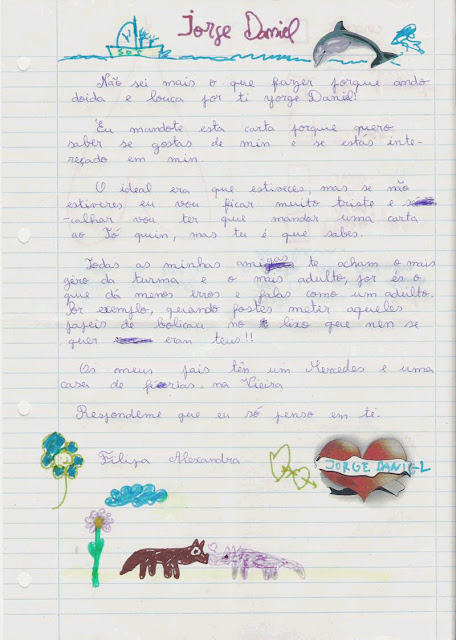 Jorge Daniel
SOS
Não sei mais o que fazer porque ando
doida e louca por ti Jorge Daniel!
Eu mandote esta carta porque quero
saber se gostas de min e se estás inte-
reçado em min.
O ideal era que estiveces, mas se não
estiveres eu vou ficar muito triste e
-calhar vou ter que mandar uma carta
ao Tó quin, mas tu é que sabes.
Todas as minhas amigas te acham o mais
giro da turma e o mais adulto, por és o
que dá menos erros e falas como um adulto.
Por exemplo, quando fostes meter aqueles
papeis de bolicau no lixo que nen se
quer eran teus!!
Os meus pais tên um Mercedes e uma
casa de férias na Vieira
Respondeme que eu só penso em ti.
Filipa Alexandra
JORGE DANIEL